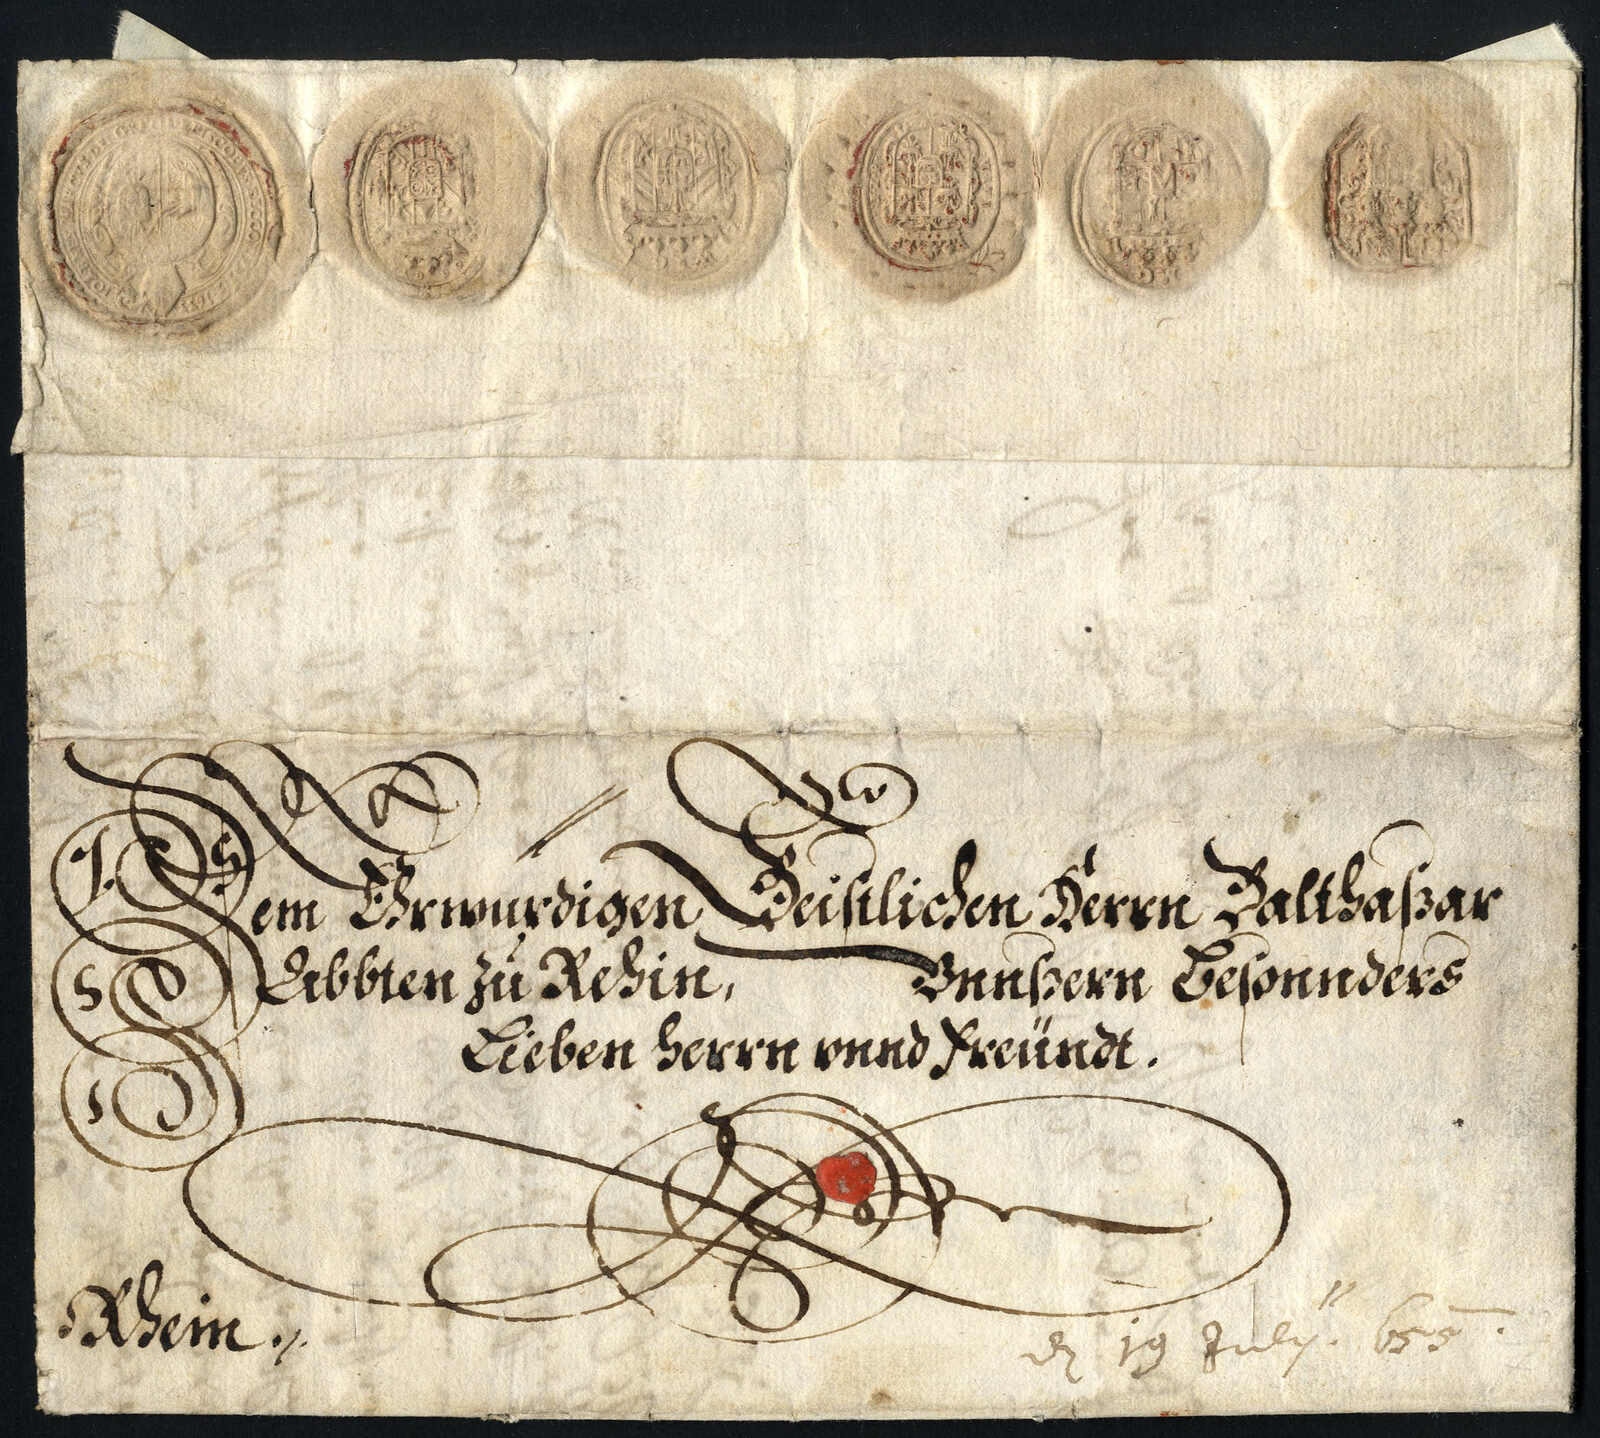 Dem Ehrwurdigen Geistlichen Herrn Balthaßar
Abbten zů Rehin, Vnnßern Besonnders
Lieben herrn vnnd Freündt.
Rhein ./.
19 July. 655.